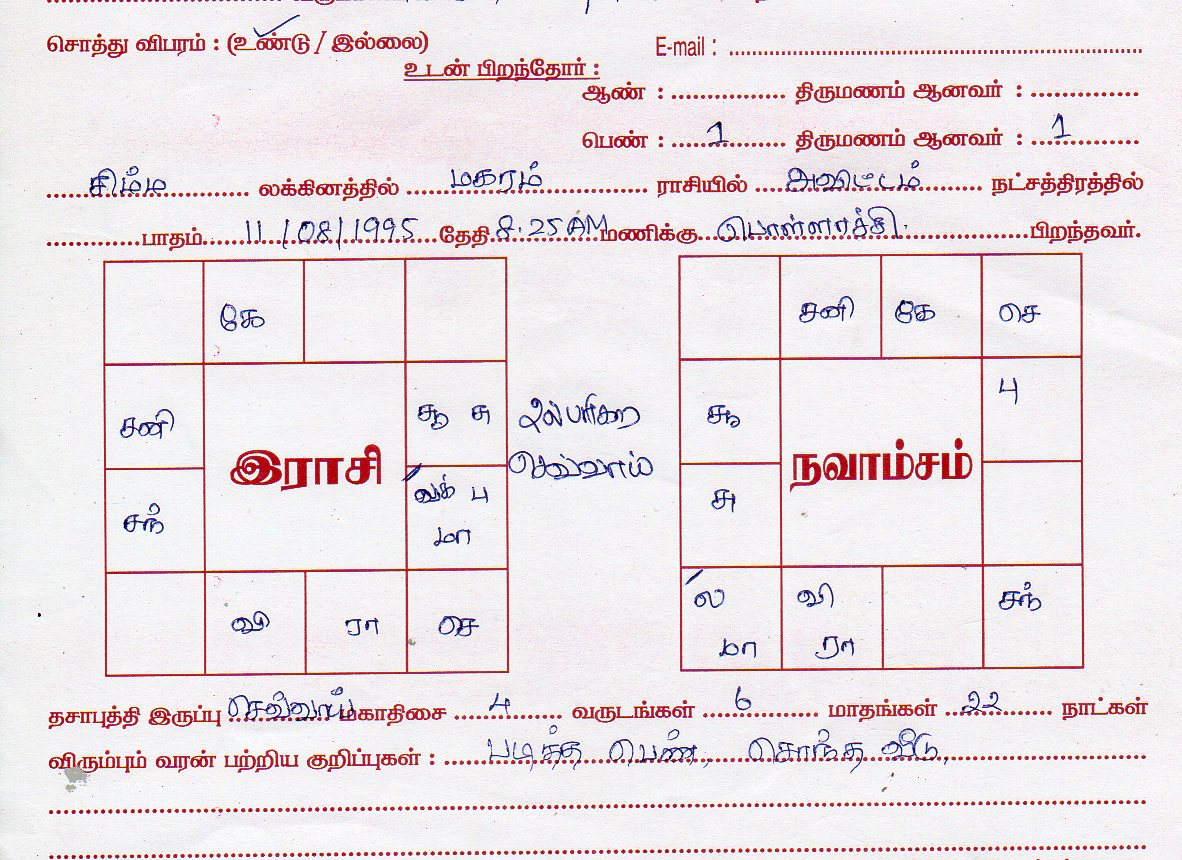 சொத்து விபரம் : (உண்டு / இல்லை) E-mail :
உடன் பிறந்தோர் :
ஆண் : திருமணம் ஆனவர் :
பெண் : 1 திருமணம் ஆனவர் : 1
சிம்ம லக்கினத்தில் மகரம் ராசியில் அவிட்டம் நட்சத்திரத்தில்
பாதம் 11/08/1995 தேதி 8.25 AM மணிக்கு பொள்ளாச்சி. பிறந்தவர்.
கே
சனி
சூ சு
சந்
இராசி
ல பு
மா
வி
ரா
செ
செவ்வாய்
சனி
கே
செ
சூ
பு
சு
நவாம்சம்
ல
மா
வி
ரா
சந்
தசாபுத்தி இருப்பு செவ்வாய் மகாதிசை 4 வருடங்கள் 6 மாதங்கள் 22 நாட்கள்
விரும்பும் வரன் பற்றிய குறிப்புகள் : படித்த பெண், சொந்த வீடு,